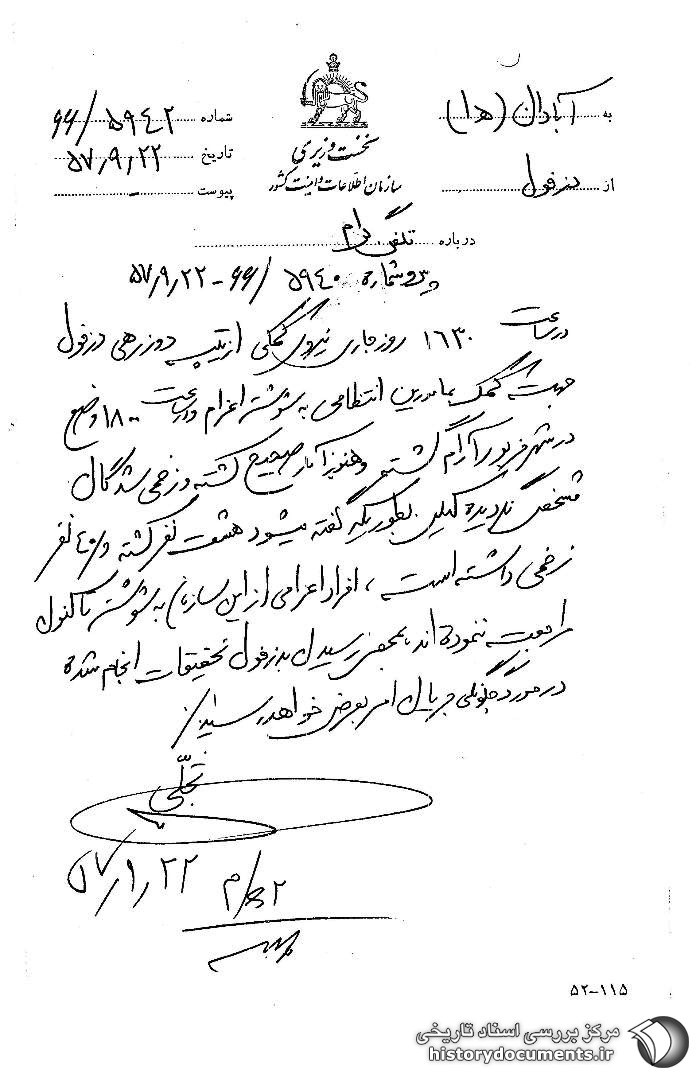 به آبادان (ه ا)
از دزفول
نخست وزیری
سازمان اطلاعات و امنیت کشور
شماره ۵۹۴۲/ ۶۶
تاریخ ۵۷٫۹٫۲۲
پیوست -
درباره تلفنگرام
پیرو شماره ۵۹۴۰/ ۶۶ - ۵۷٫۹٫۲۲
در ساعت ۱۶۳۰ روز جاری نیروی کمکی از تیپ دو زرهی دزفول
جهت کمک بمامورین انتظامی به شوشتر اعزام و از ساعت ۱۸۰۰ وضع
در شهر مزبور آرام گشته و هنوز آمار صحیح کشته و زخمی شدگان
مشخص نگردیده لیکن بطوریکه گفته میشود هشت نفر کشته و ۴۰ نفر
زخمی داشته است، افراد اعزامی از این سازمان به شوشتر تاکنون
مراجعت ننموده اند، بمحض رسیدن بدزفول تحقیقات انجام شده
در مورد چگونگی جریان امر بعرض خواهد رسید/.
تجلی
۵۷٫۹٫۲۲
۵۲-۱۱۵
مرکز بررسی اسناد تاریخی
historydocuments.ir